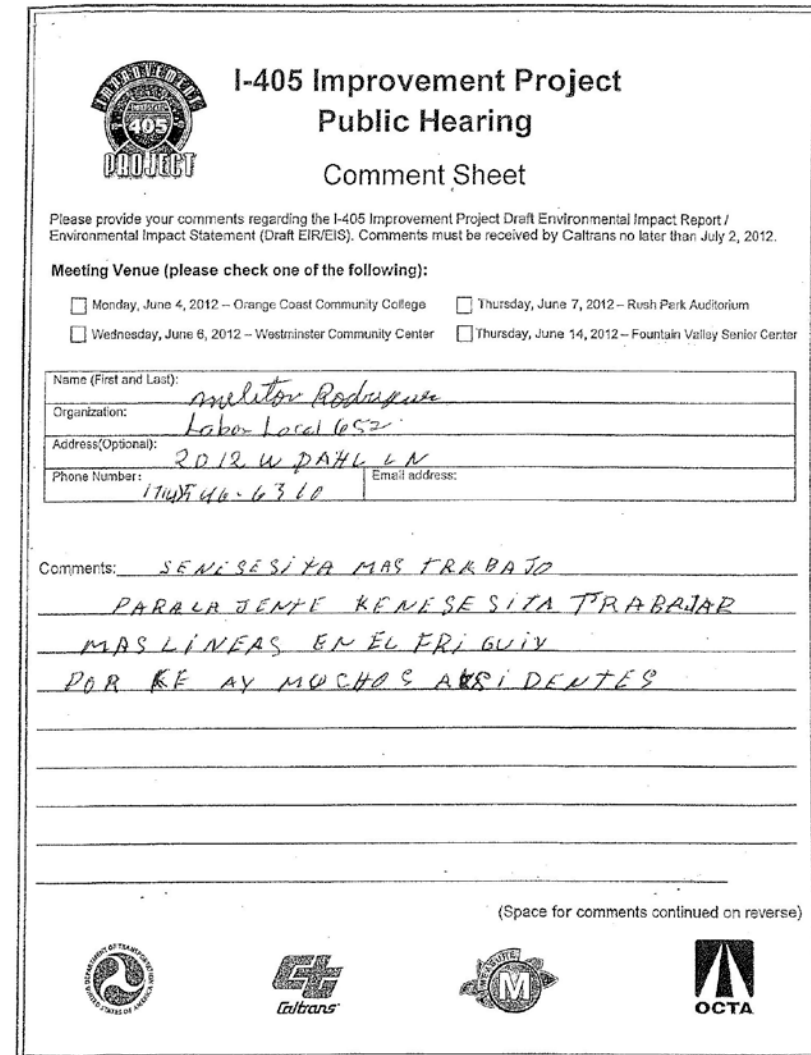 IMPROVEMENT
405
PROJECT
I-405 Improvement Project
Public Hearing
Comment Sheet
Please provide your comments regarding the I-405 Improvement Project Draft Environmental Impact Report /
Environmental Impact Statement (Draft EIR/EIS). Comments must be received by Caltrans no later than July 2, 2012.
Meeting Venue (please check one of the following):
Monday, June 4, 2012 – Orange Coast Community College Thursday, June 7, 2012 – Rush Park Auditorium
Wednesday, June 6, 2012 – Westminster Community Center Thursday, June 14, 2012 – Fountain Valley Senior Center
Name (First and Last): Meliton Rodriguez
Organization: Labor Local 652
Address(Optional): 2012 W DAHL LN
Phone Number: 546-6310 Email address:
Comments: SENESESITA MAS TRABAJO
PARALA JENTE KENESESITA TRABAJAR
MAS LINEAS EN EL FRIGUIY
POR KE AY MUCHOS AKSIDENTES
(Space for comments continued on reverse)
DEPARTMENT OF TRANSPORTATION
UNITED STATES OF AMERICA
Caltrans
MEASURE
M
OCTA